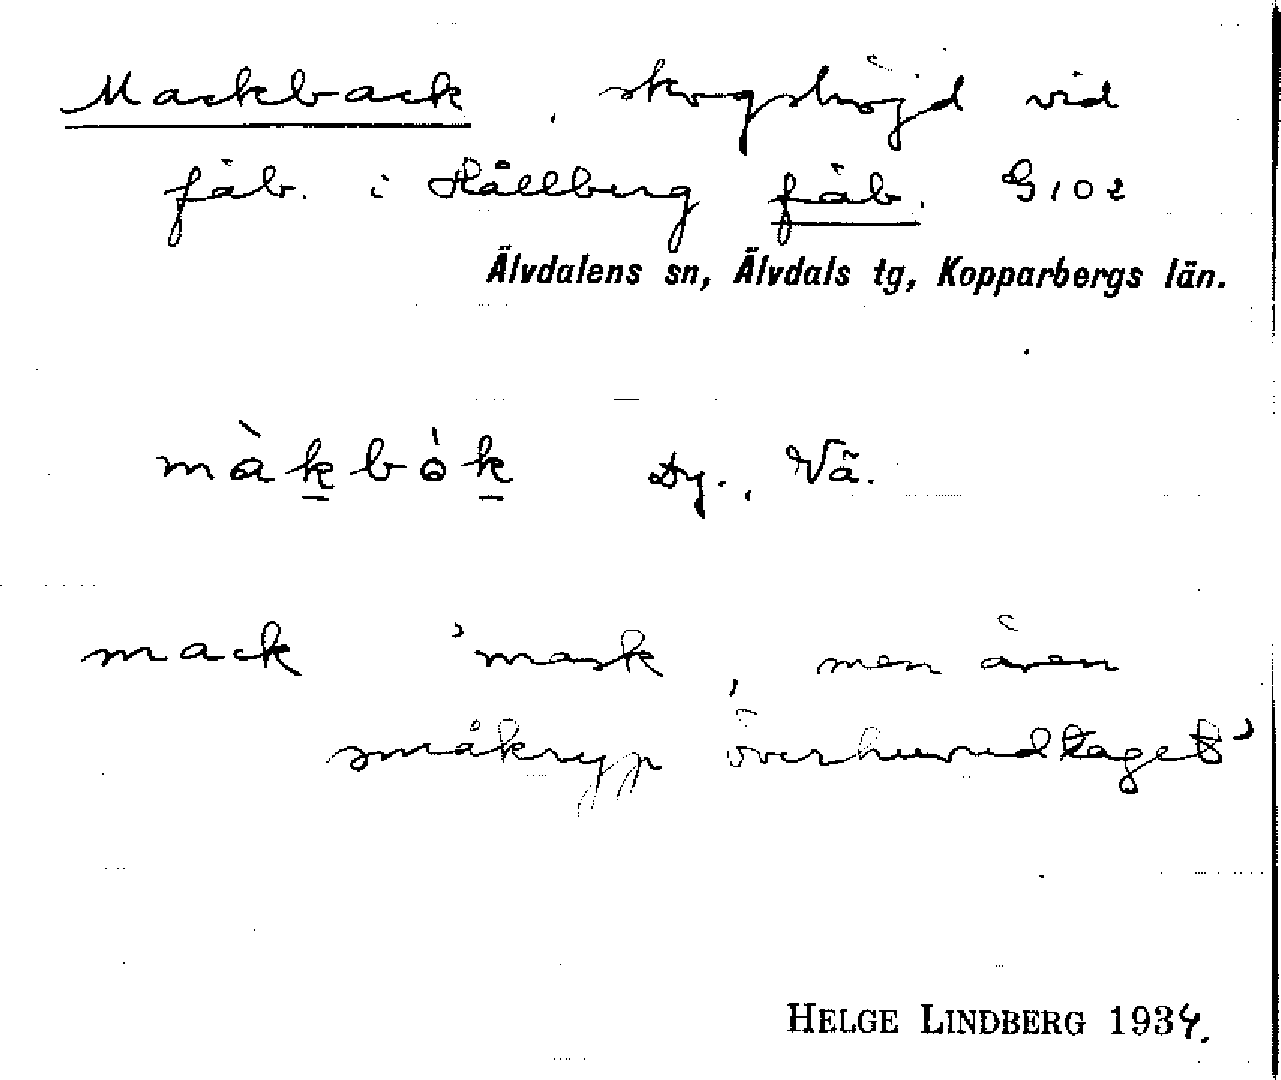 Mackback, skogshöjd vid
fäb. i Hållberg fäb. G102
Älvdalens sn, Älvdals tg, Kopparbergs län.
màk̲bók̲ Dy., Vä.
mack 'mask, men även
småkryp överhuvudtaget'
HELGE LINDBERG 1934.